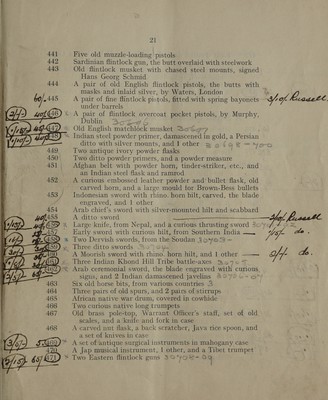 21
441 Five old muzzle-loading pistols
442 Sardinian flintlock gun, the butt overlaid with steelwork
443 Old flintlock musket with chased steel mounts, signed
Hans Georg Schmid
444 A pair of old English flintlock pistols, the butts with
masks and inlaid silver, by Waters, London
60/- 445 A pair of fine flintlock pistols, fitted with spring bayonets 3/10/- Russell.
under barrels
446 A pair of flintlock overcoat pocket pistols, by Murphy,
Dublin
447 Old English matchlock musket
448 Indian steel powder primer, damascened in gold, a Persian
ditto with silver mounts, and 1 other
449 Two antique ivory powder flasks
450 Two ditto powder primers, and a powder measure
451 Afghan belt with powder horn, tinder-striker, etc., and
an Indian steel flask and ramrod
452 A curious embossed leather powder and bullet flask, old
carved horn, and a large mould for Brown-Bess bullets
453 Indonesian sword with rhino. horn hilt, carved, the blade
engraved, and 1 other
454 Arab chief's sword with silver-mounted hilt and scabbard
455 A ditto sword Russell
Large knife, from Nepal, and a curious thrusting sword
Early sword with curious hilt, from Southern India do.
Two Dervish swords, from the Soudan
Three ditto swords
A Moorish sword with rhino horn hilt, and 1 other do.
Three Indian Khond Hill Tribe battle-axes
Arab ceremonial sword, the blade engraved with curious
signs, and 2 Indian damascened javelins
463 Six old horse bits, from various countries
464 Three pairs of old spurs, and 2 pairs of stirrups
465 African native war drum, covered in cowhide
466 Two curious native long trumpets
467 Old brass pole-top, Warrant Officer's staff, set of old
scales, and a knife and fork in case
468 A carved nut flask, a back scratcher, Java rice spoon, and
a set of knives in case
A set of antique surgical instruments in mahogany case
470 A Jap musical instrument, 1 other, and a Tibet trumpet
Two Eastern flintlock guns